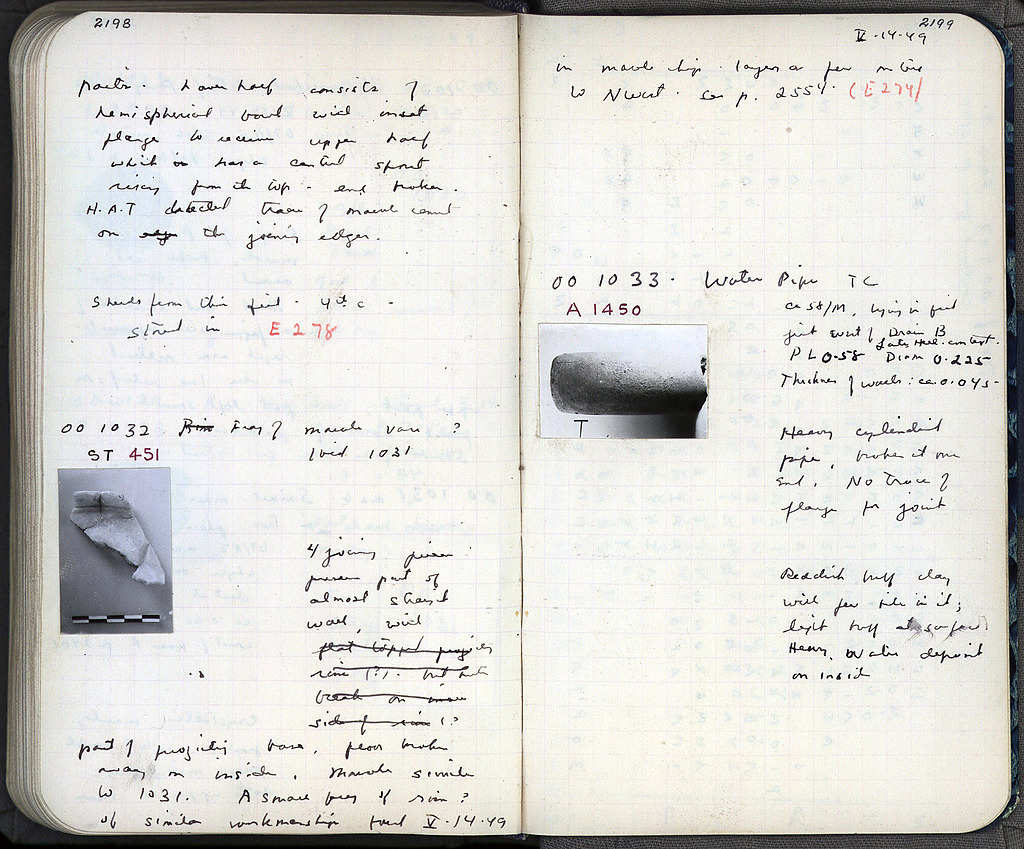 2198
parts. Lower half consists of
hemispherical bowl with inset
flange to receive upper half
which is has a central spout
rising from the top - end broken.
H.A.T detected trace of marble cement
on edge the joining edges.
Sherds from this fill. 4th c -
stored in E 278
OO 1032 Rim Frag of marble vase ?
ST 451 Ibid 1031
4 joining pieces
preserve part of
almost straight
wall, with
flat topped projecting
rim (?). but
break on inside
side of rim (?
part of projecting base, floor broken
away on inside. Marble similar
to 1031. A small frag of rim ?
of similar workmanship found V.14.49
2199
V.14.49
in marble chip layer a few metres
to NWest. See p. 2554. (E 274)
OO 1033. Water Pipe TC
A 1450
ca 58/M, lying in fill
just east / Drain B
Late Hel. context.
PL 0.58 Diam 0.225
Thickness of walls: ca 0.045-
Heavy cylindrical
pipe, broken at one
end. No trace of
flange for joint
T
Reddish buff clay
with few in it;
light buff at surface
Heavy water deposit
on inside